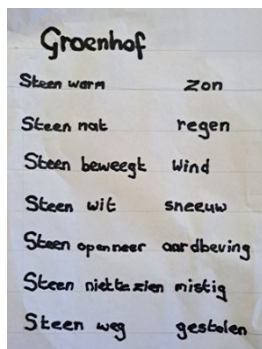 Groenhof
Steen warm zon
Steen nat regen
Steen beweegt wind
Steen wit sneeuw
Steen op en neer aardbeving
Steen niet te zien mistig
Steen weg gestolen